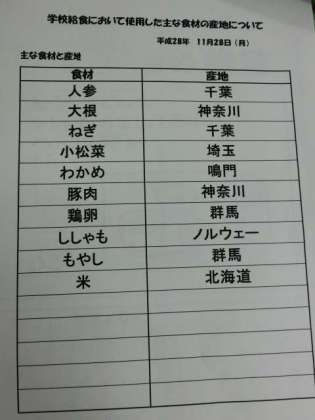 学校給食において使用した主な食材の産地について
平成28年 11月28日（月）
主な食材と産地
食材 産地
人参 千葉
大根 神奈川
ねぎ 千葉
小松菜 埼玉
わかめ 鳴門
豚肉 神奈川
鶏卵 群馬
ししゃも ノルウェー
もやし 群馬
米 北海道